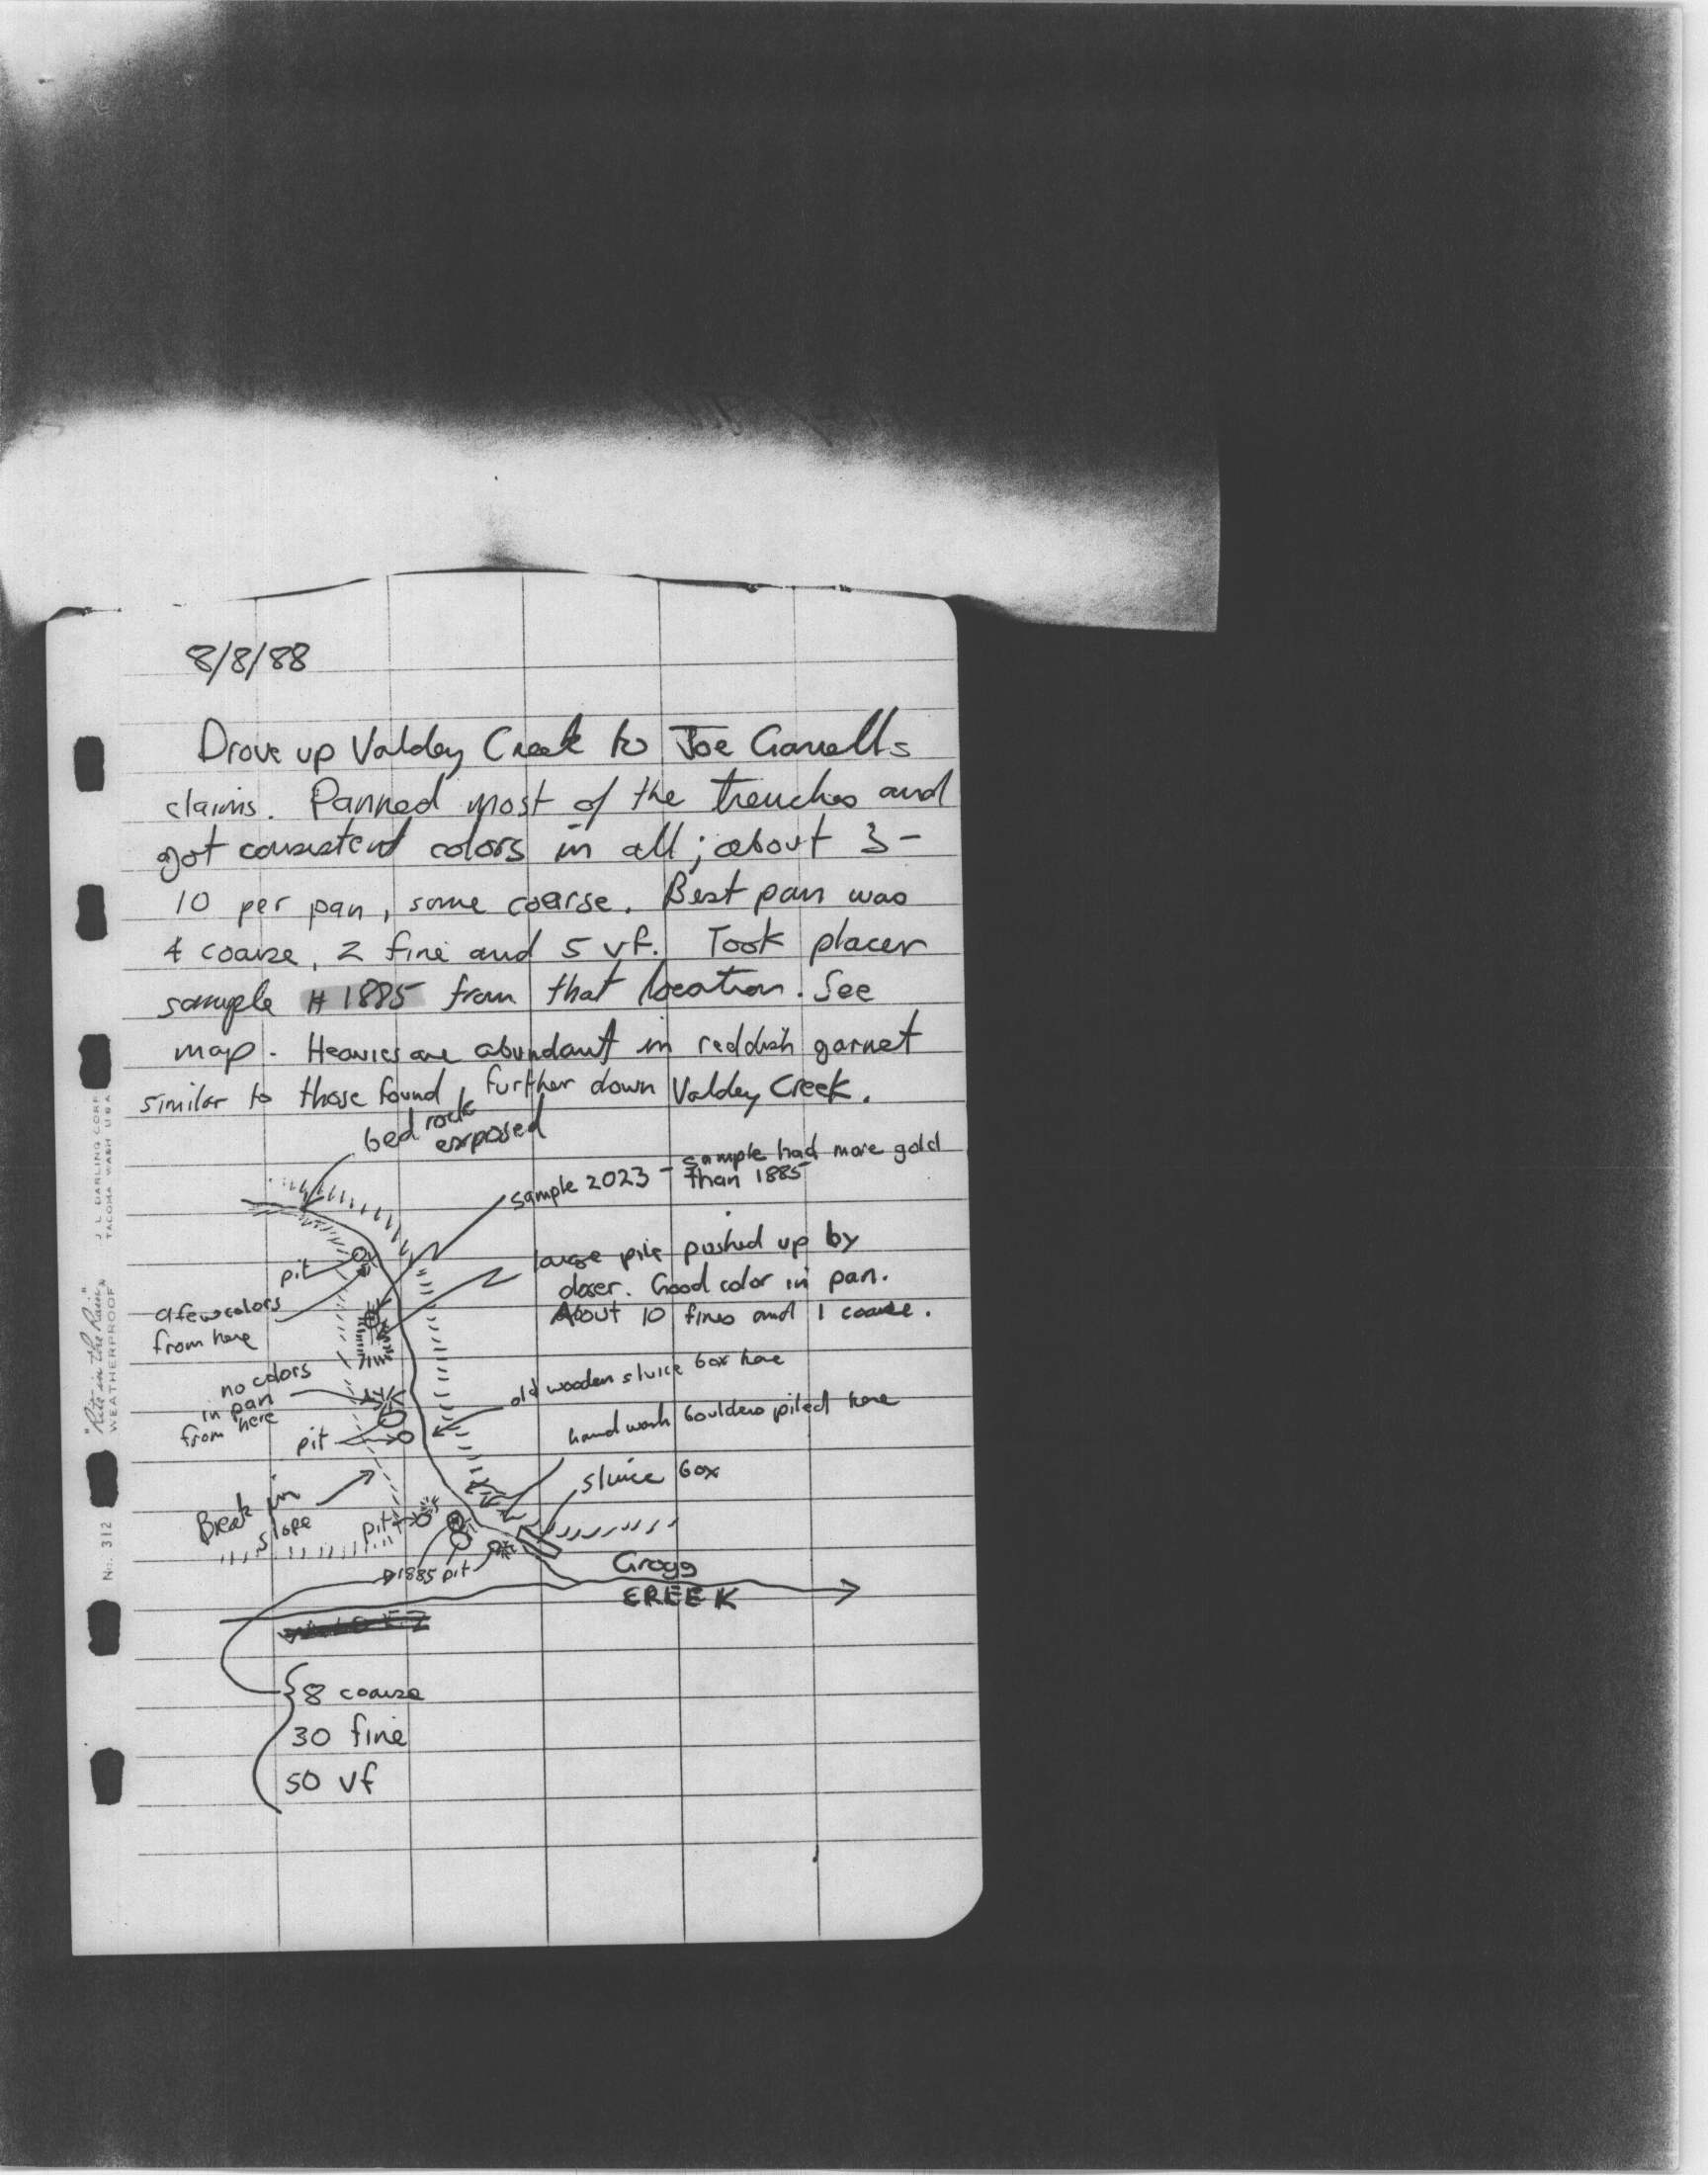 8/8/88
Drove up Valdez Creek to Joe
claims. Panned most of the trenches and
got consistent colors in all; about 3-
10 per pan, some coarse. Best pan was
4 coarse, 2 fine and 5 vf. Took placer
sample # 1885 from that location. See
map. Heavies are abundant in reddish garnet
similar to those found further down Valdez Creek.
bed rock
exposed
sample 2023 - sample had more gold
than 1885
large pile pushed up by
dozer. Good color in pan.
About 10 fines and 1 coarse.
pit
a few colors
from here
no colors
in pan
from here
old wooden sluice box here
hand work boulders piled here
pit
sluice box
Break in
slope
pit
1885 pit
Grogg
CREEK
{8 coarse
30 fine
50 vf
J. L. DARLING CORP.
TACOMA WASH USA
"Rite in the Rain"
WEATHERPROOF
No. 312